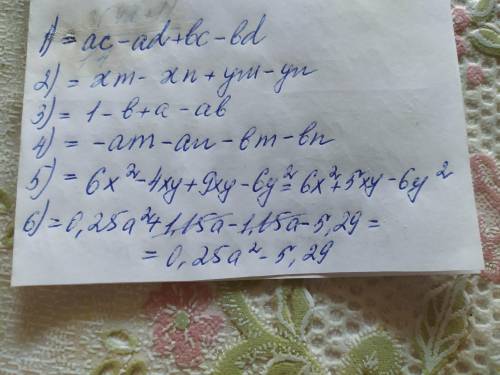 1) = ac - ad + bc - bd
2) = xm - xn + ym - yn
3) = 1 - b + a - ab
4) = -am - an - bm - bn
5) = 6x² - 4xy + 9xy - 6y² = 6x² + 5xy - 6y²
6) = 0,25a² + 1,15a - 1,15a - 5,29 =
= 0,25a² - 5,29